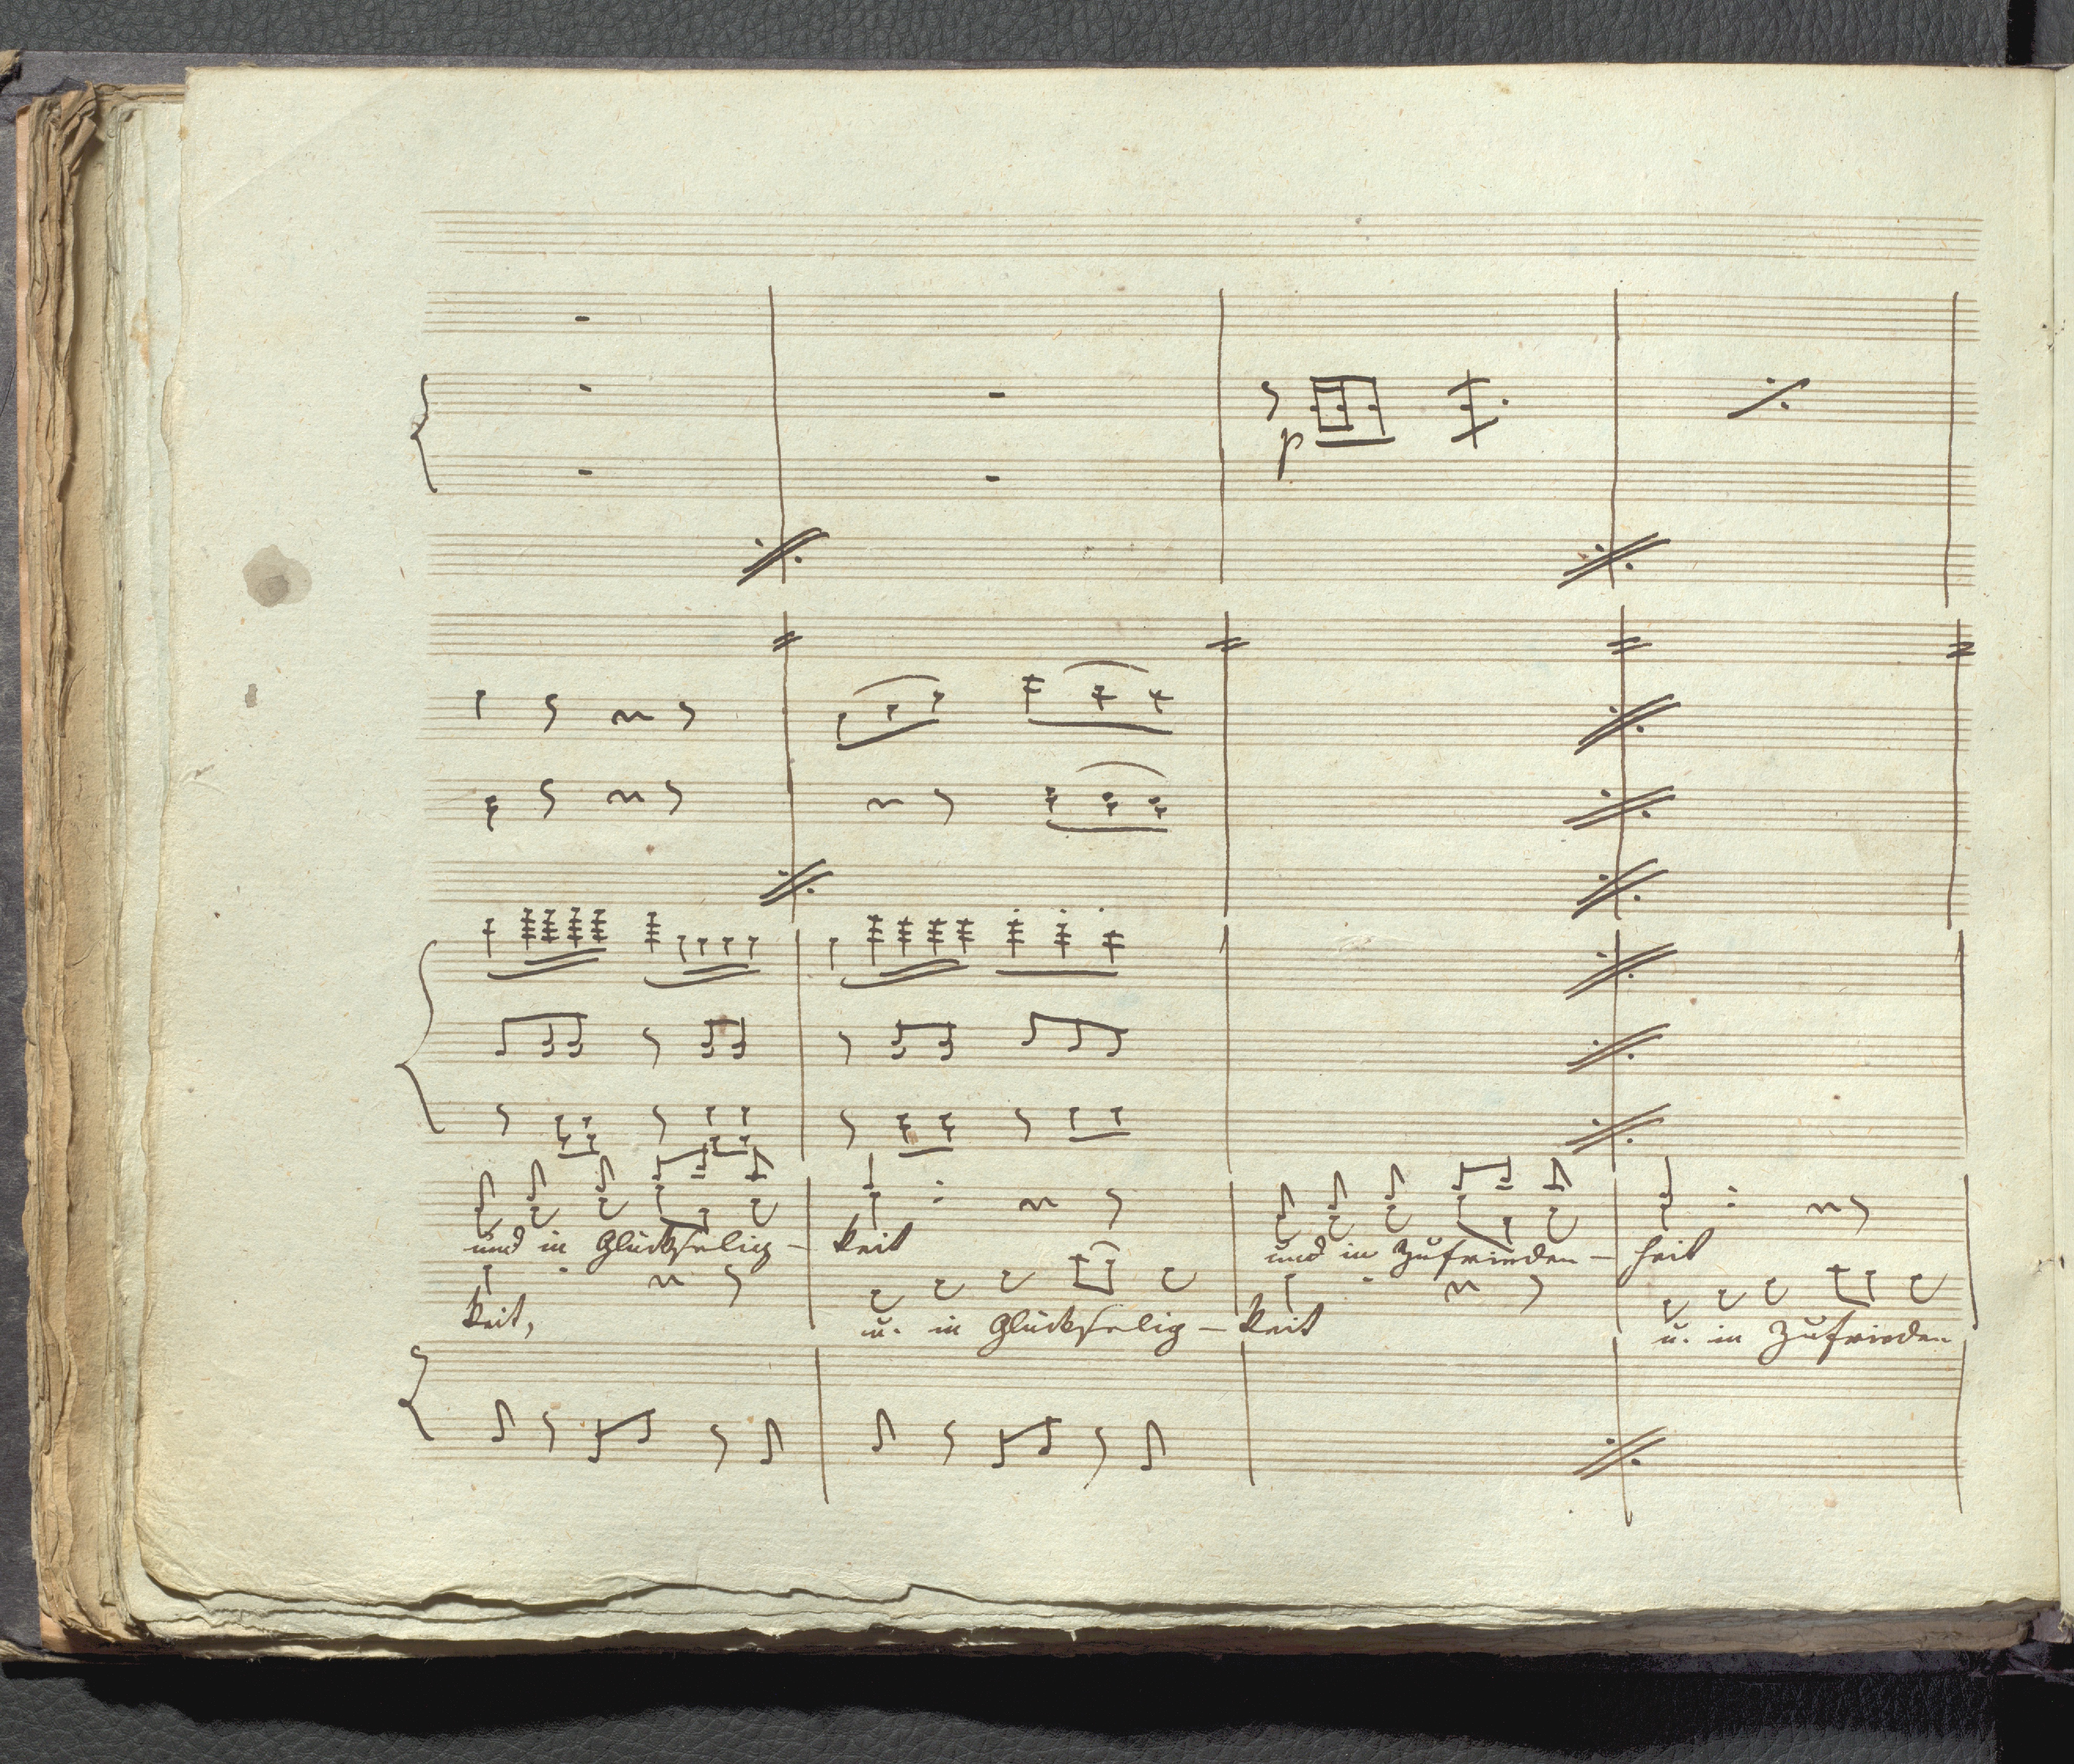 p
und in Glückselig- keit und in Zufrieden- heit
keit, u. in Glückselig- keit u. in Zufrieden